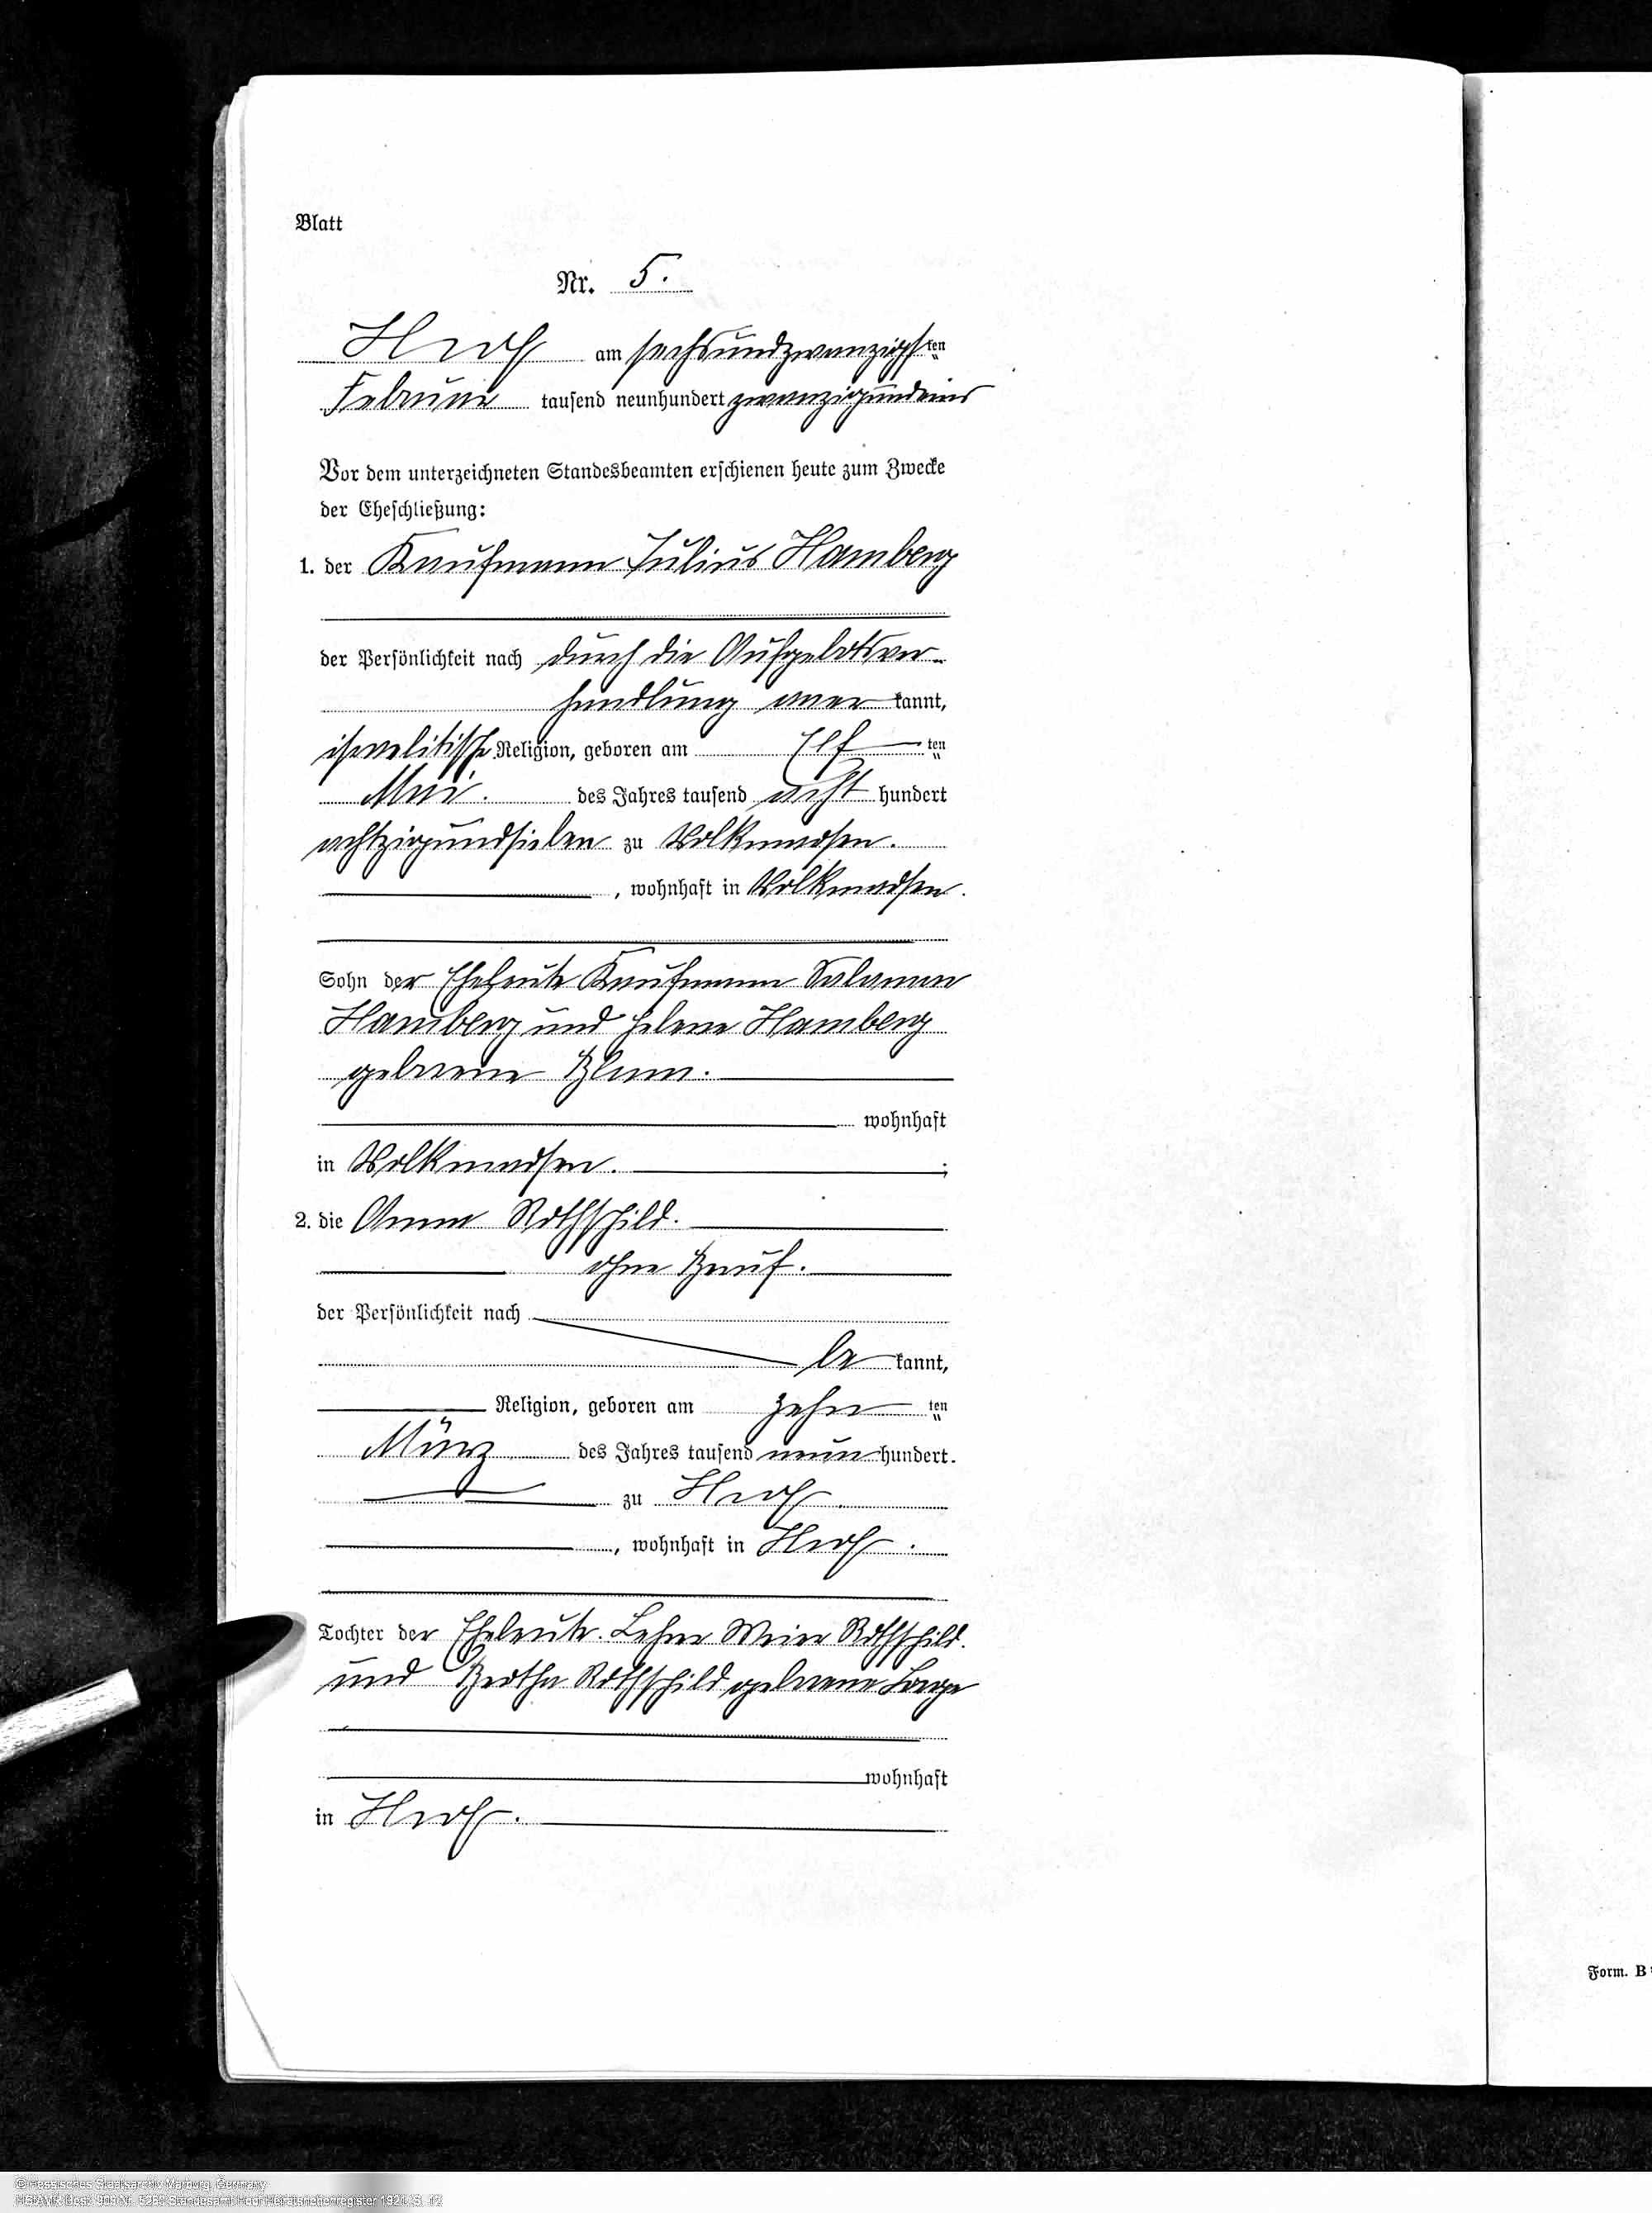 Blatt
Nr. 5.
Hoof am sechsundzwanzigsten
Februar tausend neunhundert zwanzigundeins
Vor dem unterzeichneten Standesbeamten erschienen heute zum Zwecke
der Eheschließung:
1. der Kaufmann Julius Hamberg
der Persönlichkeit nach durch die Aufgebotsver-
handlung aner kannt,
israelitische Religion, geboren am Elf ten
Mai. des Jahres tausend acht hundert
achtzigundsieben zu Volkmarsen.
, wohnhaft in Volkmarsen.
Sohn der Eheleute Kaufmann Salomon
Hamberg und Helene Hamberg
geborene Blum.
wohnhaft
in Volkmarsen. ;
2. die Anna Rothschild.
ohne Beruf.
der Persönlichkeit nach
be kannt,
Religion, geboren am zehn ten
März des Jahres tausend neun hundert.
zu Hoof
, wohnhaft in Hoof.
Tochter der Eheleute. Lehrer Meier Rothschild.
und Bertha Rothschild geborene Lorge
wohnhaft
in Hoof.
Form. B
© Hessisches Staatsarchiv Marburg, Germany
HStAMR Best. 909 Nr. Standesamt Hoof Heiratsnebenregister 1921, S. 12